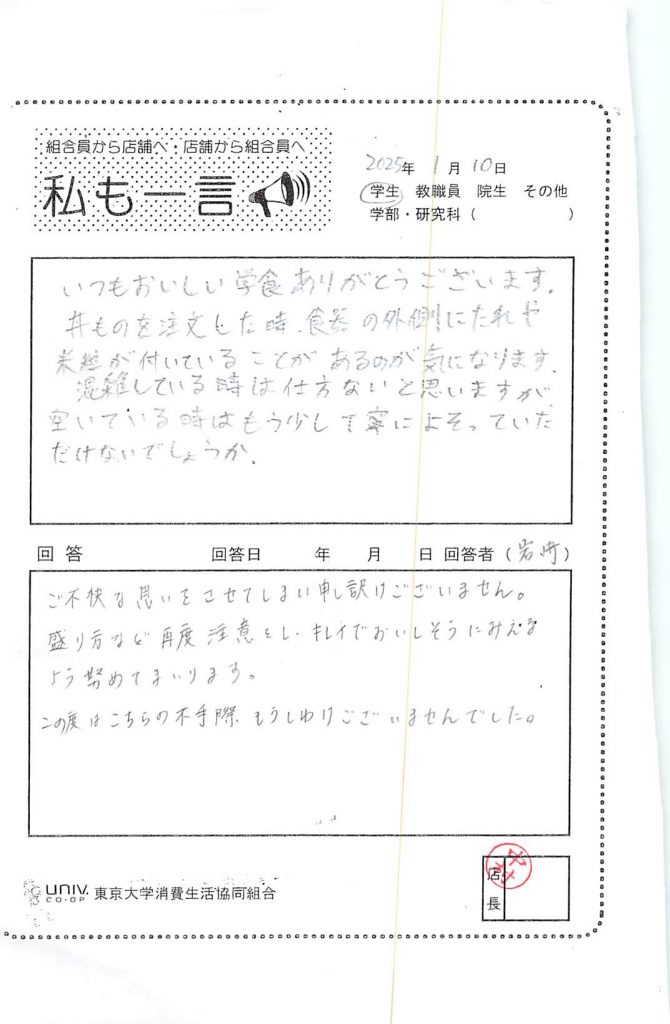 組合員から店舗へ・店舗から組合員へ
私も一言
2025年 1月 10日
学生 教職員 院生 その他
学部・研究科 ( )
いつもおいしい学食ありがとうございます。
丼ものを注文した時、食器の外側にたれや
米粒が付いていることがあるのが気になります。
混雑している時は仕方ないと思いますが、
空いている時はもう少し丁寧によそっていた
だけないでしょうか。
回答 回答日 年 月 日 回答者 (岩崎)
ご不快な思いをさせてしまい申し訳けございません。
盛り方など再度注意をし、キレイでおいしそうにみえる
よう努めてまいります。
この度はこちらの不手際、もうしわけございませんでした。
UNIV.
CO-OP 東京大学消費生活協同組合
店長